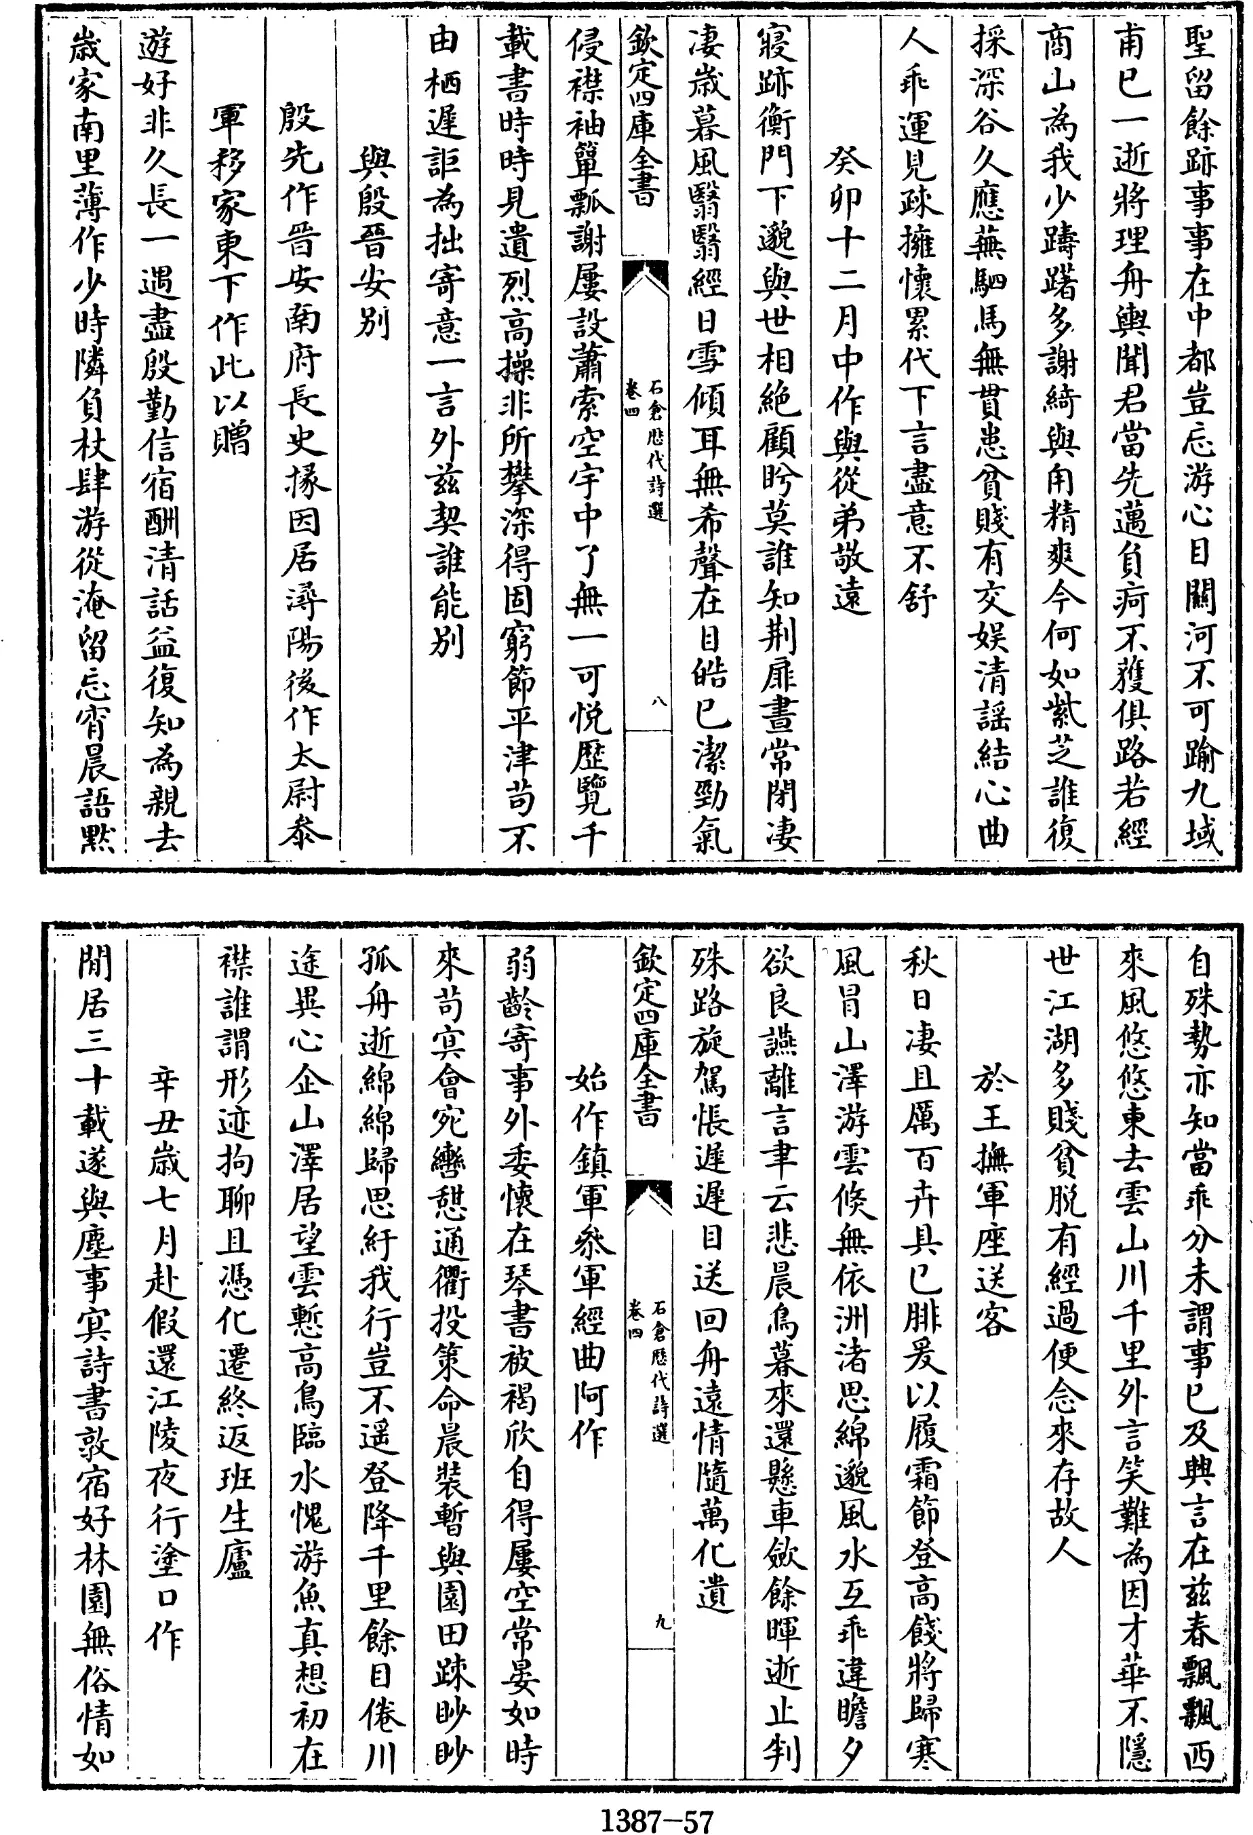 聖留餘跡事事在中都豈忘游心目關河不可踰九域
甫已一逝將理舟輿聞君當先邁負疴不獲俱路若經
商山為我少躊躇多謝綺與甪精爽今何如紫芝誰復
採深谷久應蕪駟馬無貰患貧賤有交娛清謡結心曲
人乖運見疎擁懷累代下言盡意不舒
癸卯十二月中作與從弟敬遠
寢跡衡門下邈與世相絶顧盻莫誰知荆扉晝常閉淒
淒歲暮風翳翳經日雪傾耳無希聲在目皓已潔勁氣
欽定四庫全書
石倉歷代詩選
卷四
八
侵襟袖簞瓢謝屢設蕭索空宇中了無一可悦歷覽千
載書時時見遺烈高操非所攀深得固窮節平津茍不
由栖遲詎為拙寄意一言外兹契誰能别
與殷晉安别
殷先作晉安南府長史掾因居潯陽後作太尉叅
軍移家東下作此以贈
遊好非久長一遇盡殷勤信宿酬清話益復知為親去
歲家南里薄作少時隣負杖肆游從淹留忘宵晨語黙
自殊勢亦知當乖分未謂事已及興言在兹春飄飄西
來風悠悠東去雲山川千里外言笑難為因才華不隱
世江湖多賤貧脱有經過便念來存故人
於王撫軍座送客
秋日淒且厲百卉具已腓爰以履霜節登高餞將歸寒
風冒山澤游雲倐無依洲渚思綿邈風水互乖違瞻夕
欲良讌離言聿云悲晨鳥暮來還懸車歛餘暉逝止判
殊路旋駕悵遲遲目送回舟遠情隨萬化遺
欽定四庫全書
石倉歷代詩選
卷四
九
始作鎮軍叅軍經曲阿作
弱齡寄事外委懷在琴書被褐欣自得屢空常晏如時
來茍㝠會宛轡憇通衢投策命晨裝暫與園田疎眇眇
孤舟逝綿綿歸思紆我行豈不遥登降千里餘目倦川
途異心企山澤居望雲慙高鳥臨水愧游魚真想初在
襟誰謂形迹拘聊且憑化遷終返班生廬
辛丑歲七月赴假還江陵夜行塗口作
閒居三十載遂與塵事㝠詩書敦宿好林園無俗情如
1387-57